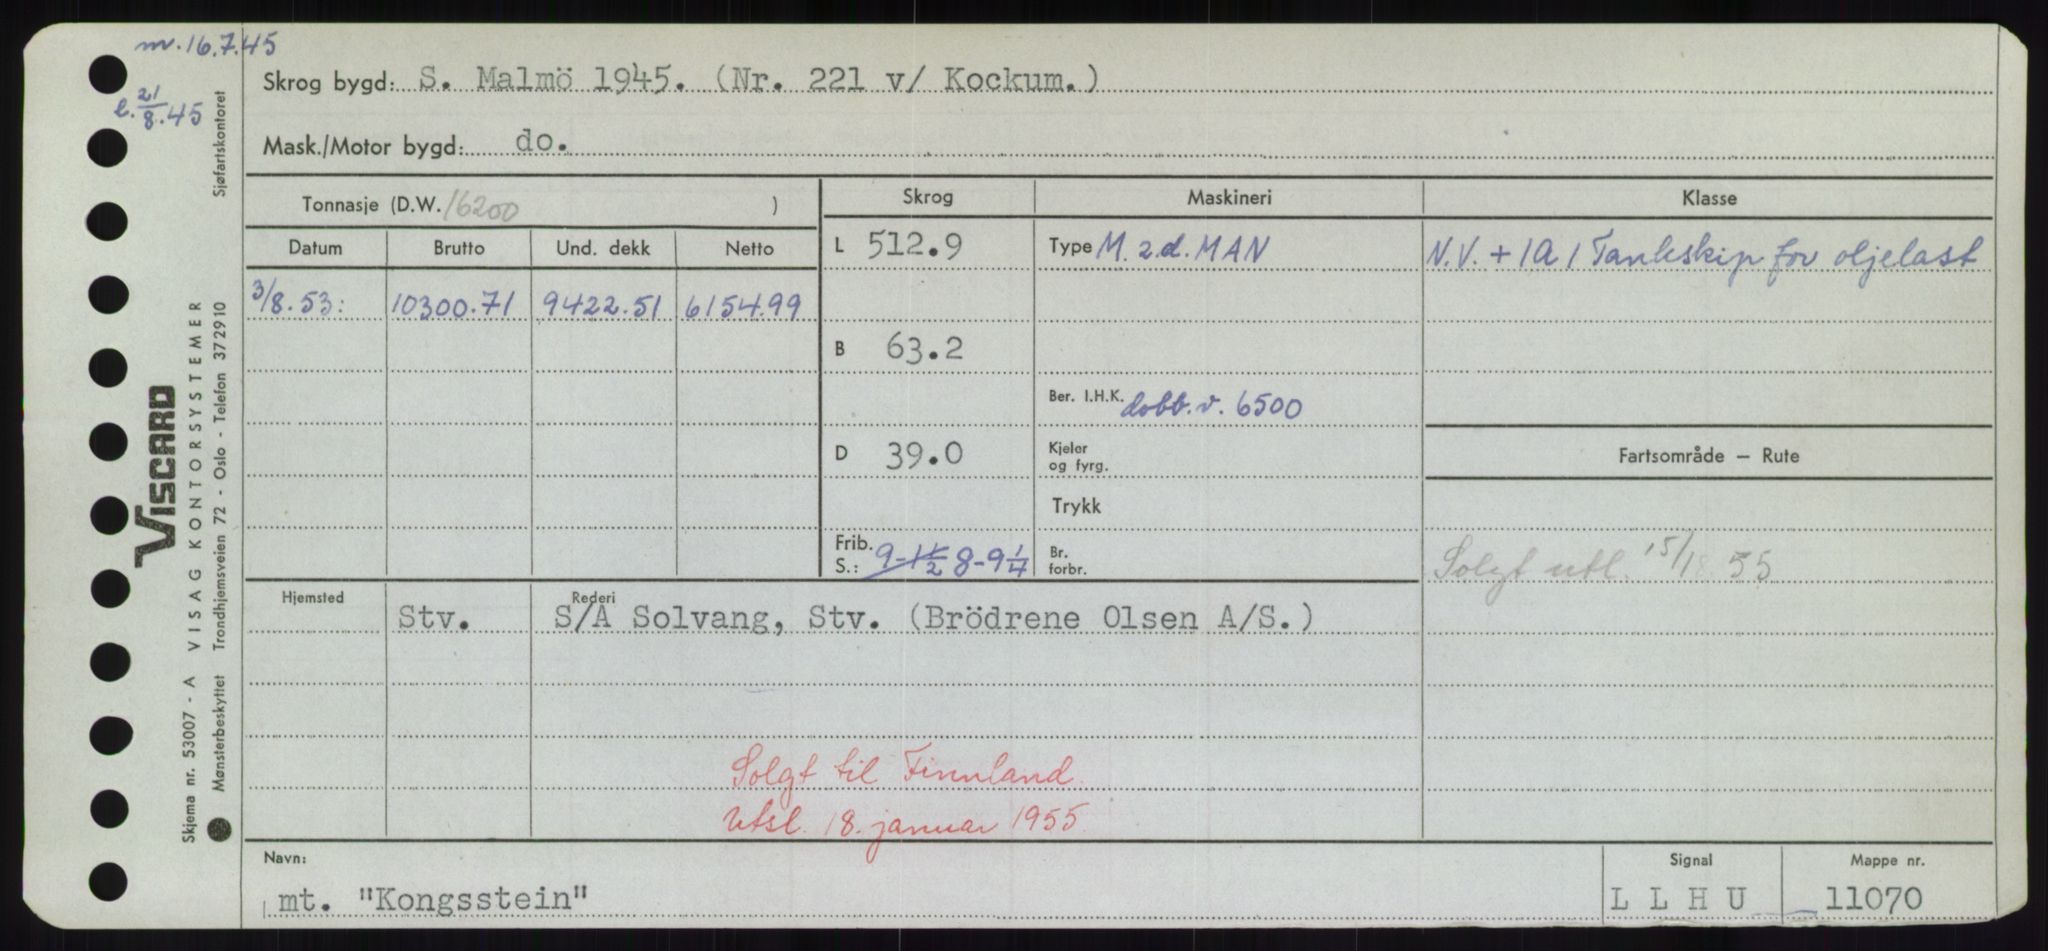 m. 16.7.45
e. 21/8.45
Sjøfartskontoret
Skrog bygd: S. Malmö 1945. (Nr. 221 v/ Kockum.)
Mask./Motor bygd: do.
Tonnasje (D.W. 16200 )
Datum Brutto Und. dekk Netto
3/8.53: 10300.71 9422.51 6154.99
Skrog Maskineri Klasse
L 512.9 Type M. 2.d. MAN N.V. + 1A 1 Tankskip for oljelast
B 63.2
Ber. I.H.K. dobb.v. 6500
D 39.0 Kjeler og fyrg.
Fartsområde – Rute
Trykk
Frib. S.: 9-1 1/2 8-9 1/4 Br. forbr.
Solgt utl. 15/1 55
Hjemsted Rederi
Stv. S/A Solvang, Stv. (Brödrene Olsen A/S.)
Solgt til Finnland.
Utsl. 18. januar 1955
Navn: Signal Mappe nr.
mt. "Kongsstein" L L H U 11070
VISCARD
VISAG KONTORSYSTEMER
Skjema nr. 53007 - A
Mønsterbeskyttet Trondhjemsveien 72 - Oslo - Telefon 372910